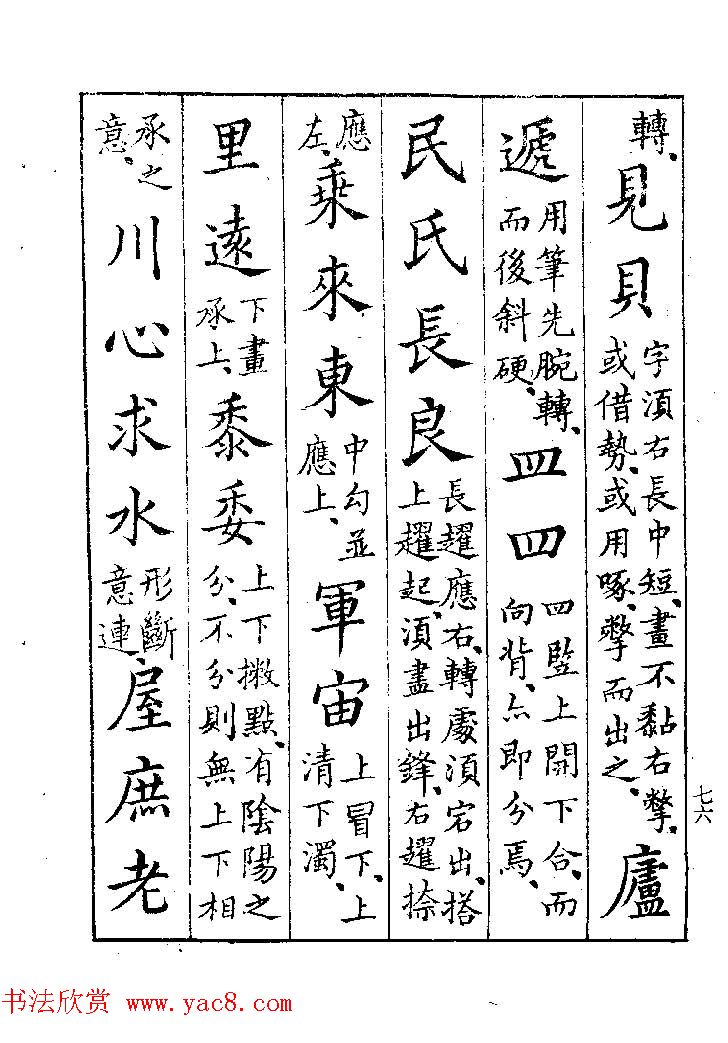 轉、見貝字須右長中短、畫不黏右撆、或借勢、或用啄、撆而出之、廬
遞用筆先腕轉、而後斜硬、皿四四豎上開下合、而向背、亦即分焉、
民氏長良長趯應右、轉處須宕出、搭上趯起、須盡出鋒、右趯捺
應左、乗來東中勾並應上、軍宙上冒下、上清下濁、
里遠下畫承上、黍委上下撇點、有陰陽之分、不分則無上下相
承之意、川心求水形斷意連屋庶老
七六
书法欣赏 www.yac8.com